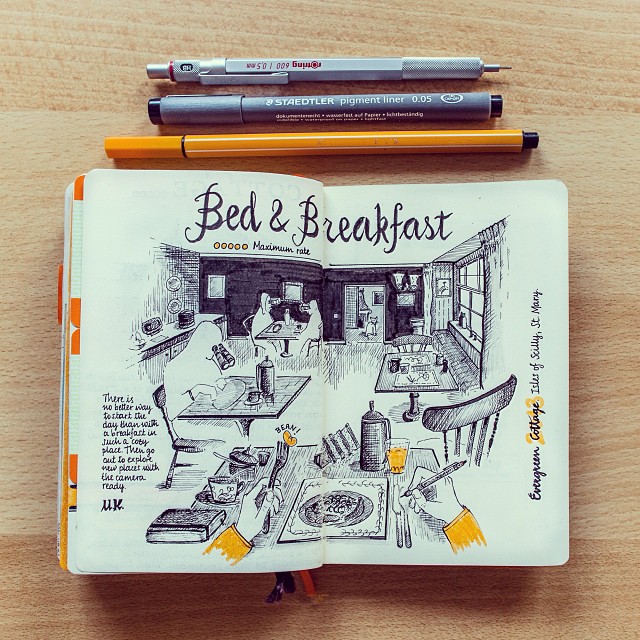 rotring 600 | 0.5 mm
STAEDTLER pigment liner 0.05
dokumentenecht • wasserfest auf Papier • lichtbeständig
Bed & Breakfast
Maximum rate
There is
no better way
to start the
day than with
a breakfast in
such a cosy
place. Then go
out to explore
new places with
the camera
ready.
U.K.
BEAN!
Evergreen Cottage Isles of Scilly, St Mary